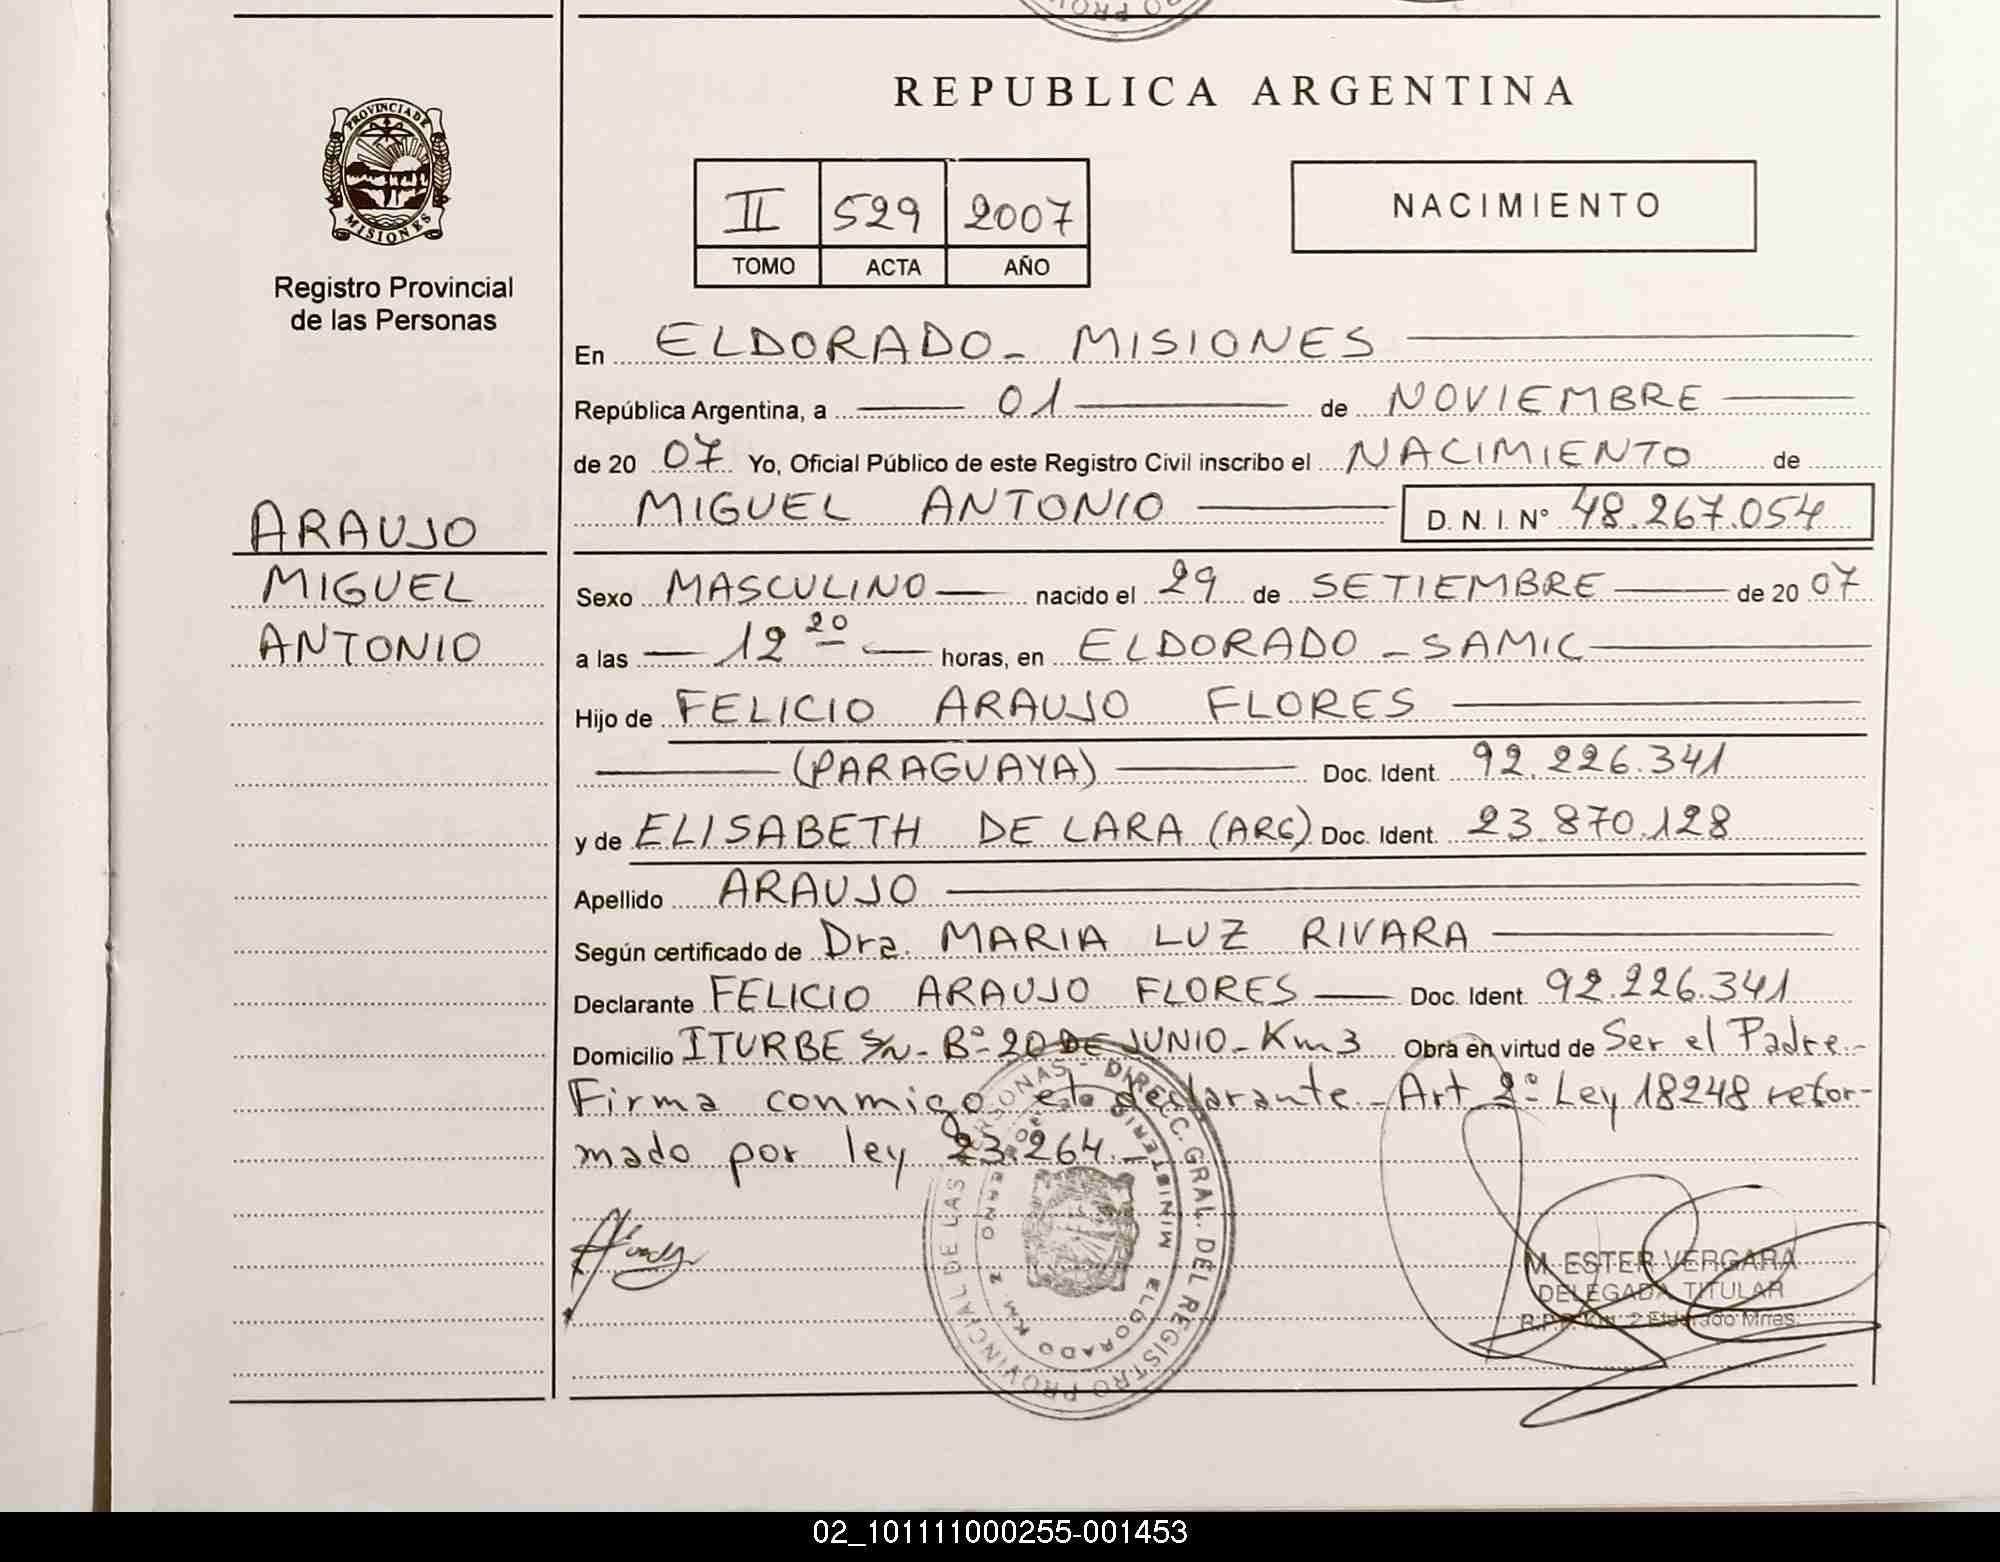 REPUBLICA ARGENTINA
PROVINCIA DE
MISIONES
Registro Provincial
de las Personas
II 529 2007
TOMO ACTA AÑO
NACIMIENTO
En ELDORADO - MISIONES
República Argentina, a 01 de NOVIEMBRE
de 20 07 Yo, Oficial Público de este Registro Civil inscribo el NACIMIENTO de
MIGUEL ANTONIO D. N. I. N° 48.267.054
ARAUJO
MIGUEL
ANTONIO
Sexo MASCULINO nacido el 29 de SETIEMBRE de 20 07
a las 12 20 horas, en ELDORADO - SAMIC
Hijo de FELICIO ARAUJO FLORES
(PARAGUAYA) Doc. Ident. 92.226.341
y de ELISABETH DE LARA (ARG) Doc. Ident. 23.870.128
Apellido ARAUJO
Según certificado de Dra. MARIA LUZ RIVARA
Declarante FELICIO ARAUJO FLORES Doc. Ident. 92.226.341
Domicilio ITURBE S/N - Bº- 20 DE JUNIO - Km 3 Obra en virtud de Ser el Padre.-
Firma conmigo esta declarante - Art 2º Ley 18248 refor-
mado por ley 23.264.-
DIREC. GRAL. DEL REGISTRO PROVINCIAL DE LAS PERSONAS -
ELDORADO KM 2
M. ESTER VERGARA
DELEGADA TITULAR
R.P.P. Km. 2 Eldorado Mnes.
02_101111000255-001453